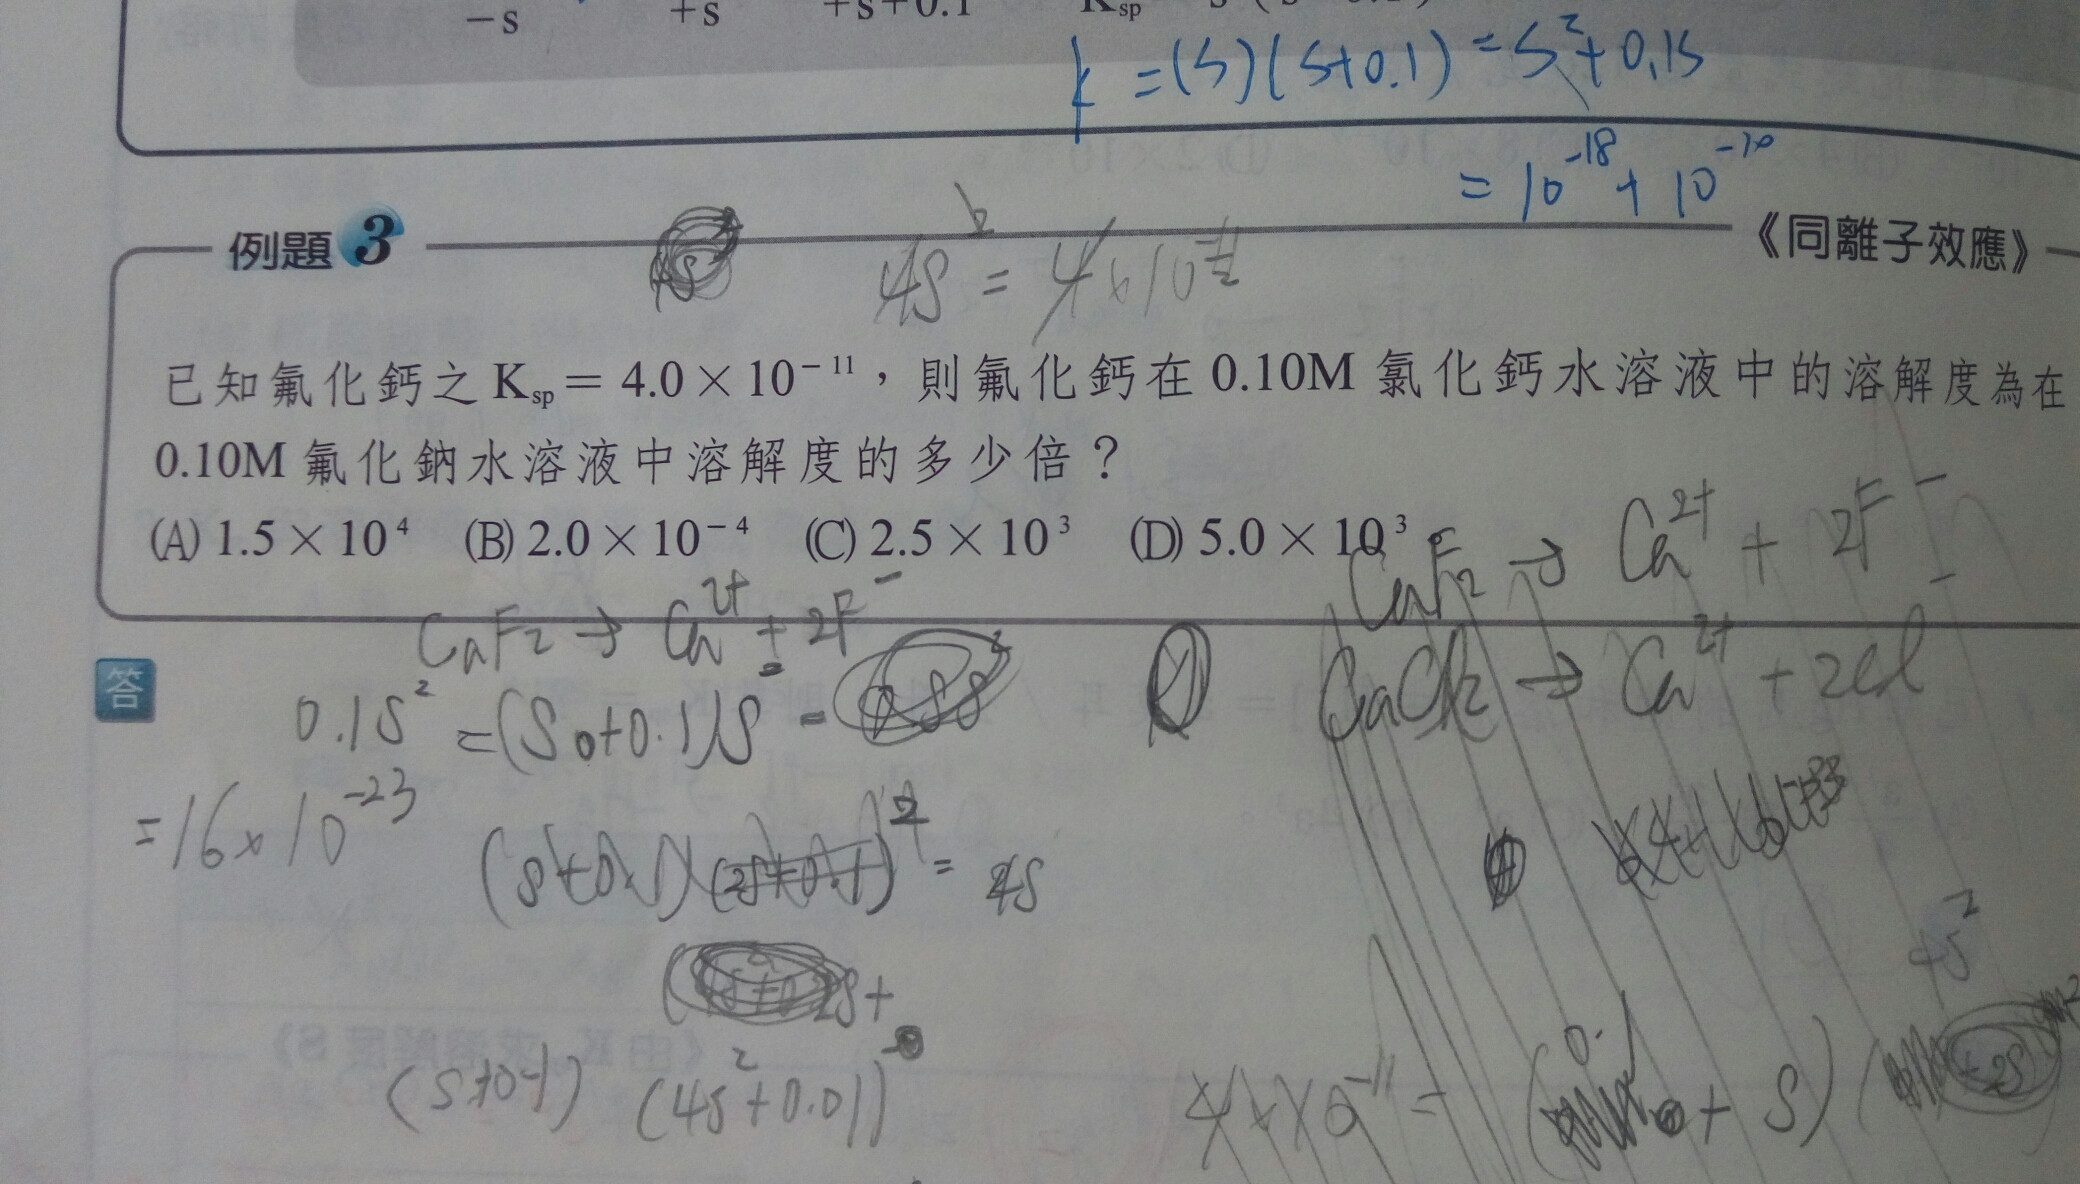 −s +s +s+0.1 Ksp
k = (s)(s+0.1) = s²+0.1s
= 10⁻¹⁸ + 10⁻¹⁰
例題 3 《同離子效應》
4s² = 4×10
已知氟化鈣之 Ksp = 4.0 × 10⁻¹¹,則氟化鈣在 0.10M 氯化鈣水溶液中的溶解度為在
0.10M 氟化鈉水溶液中溶解度的多少倍?
(A) 1.5 × 10⁴ (B) 2.0 × 10⁻⁴ (C) 2.5 × 10³ (D) 5.0 × 10³。
CaF₂ → Ca²⁺ + 2F⁻
CaF₂ → Ca²⁺ + 2F⁻
CaCl₂ → Ca²⁺ + 2Cl⁻
答
0.1s² = (s+0.1)s² =
= 16×10⁻²³
(s+0.1)(2s+0.1)² = 4s
2s+
(s+0.1) (4s²+0.01)
4×10⁻¹¹ = (0.1 + s) (
4s²